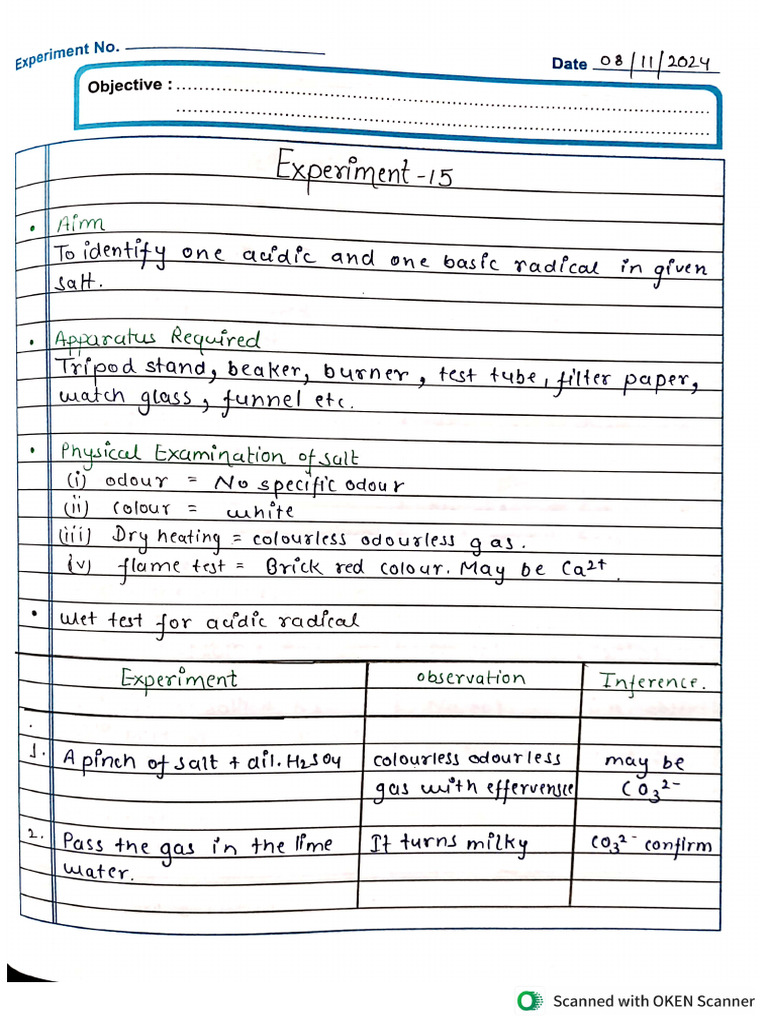 Experiment No.
Date 08/11/2024
Objective :
Experiment - 15
• Aim
To identify one acidic and one basic radical in given
salt.
• Apparatus Required
Tripod stand, beaker, burner, test tube, filter paper,
watch glass, funnel etc.
• Physical Examination of salt
(i) odour = No specific odour
(ii) colour = white
(iii) Dry heating = colourless odourless gas.
(v) flame test = Brick red colour. May be Ca²⁺.
• Wet test for acidic radical
Experiment observation Inference.
1. A pinch of salt + dil. H₂SO₄ colourless odourless may be
gas with effervensce CO₃²⁻
2. Pass the gas in the lime It turns milky CO₃²⁻ confirm
water.
Scanned with OKEN Scanner